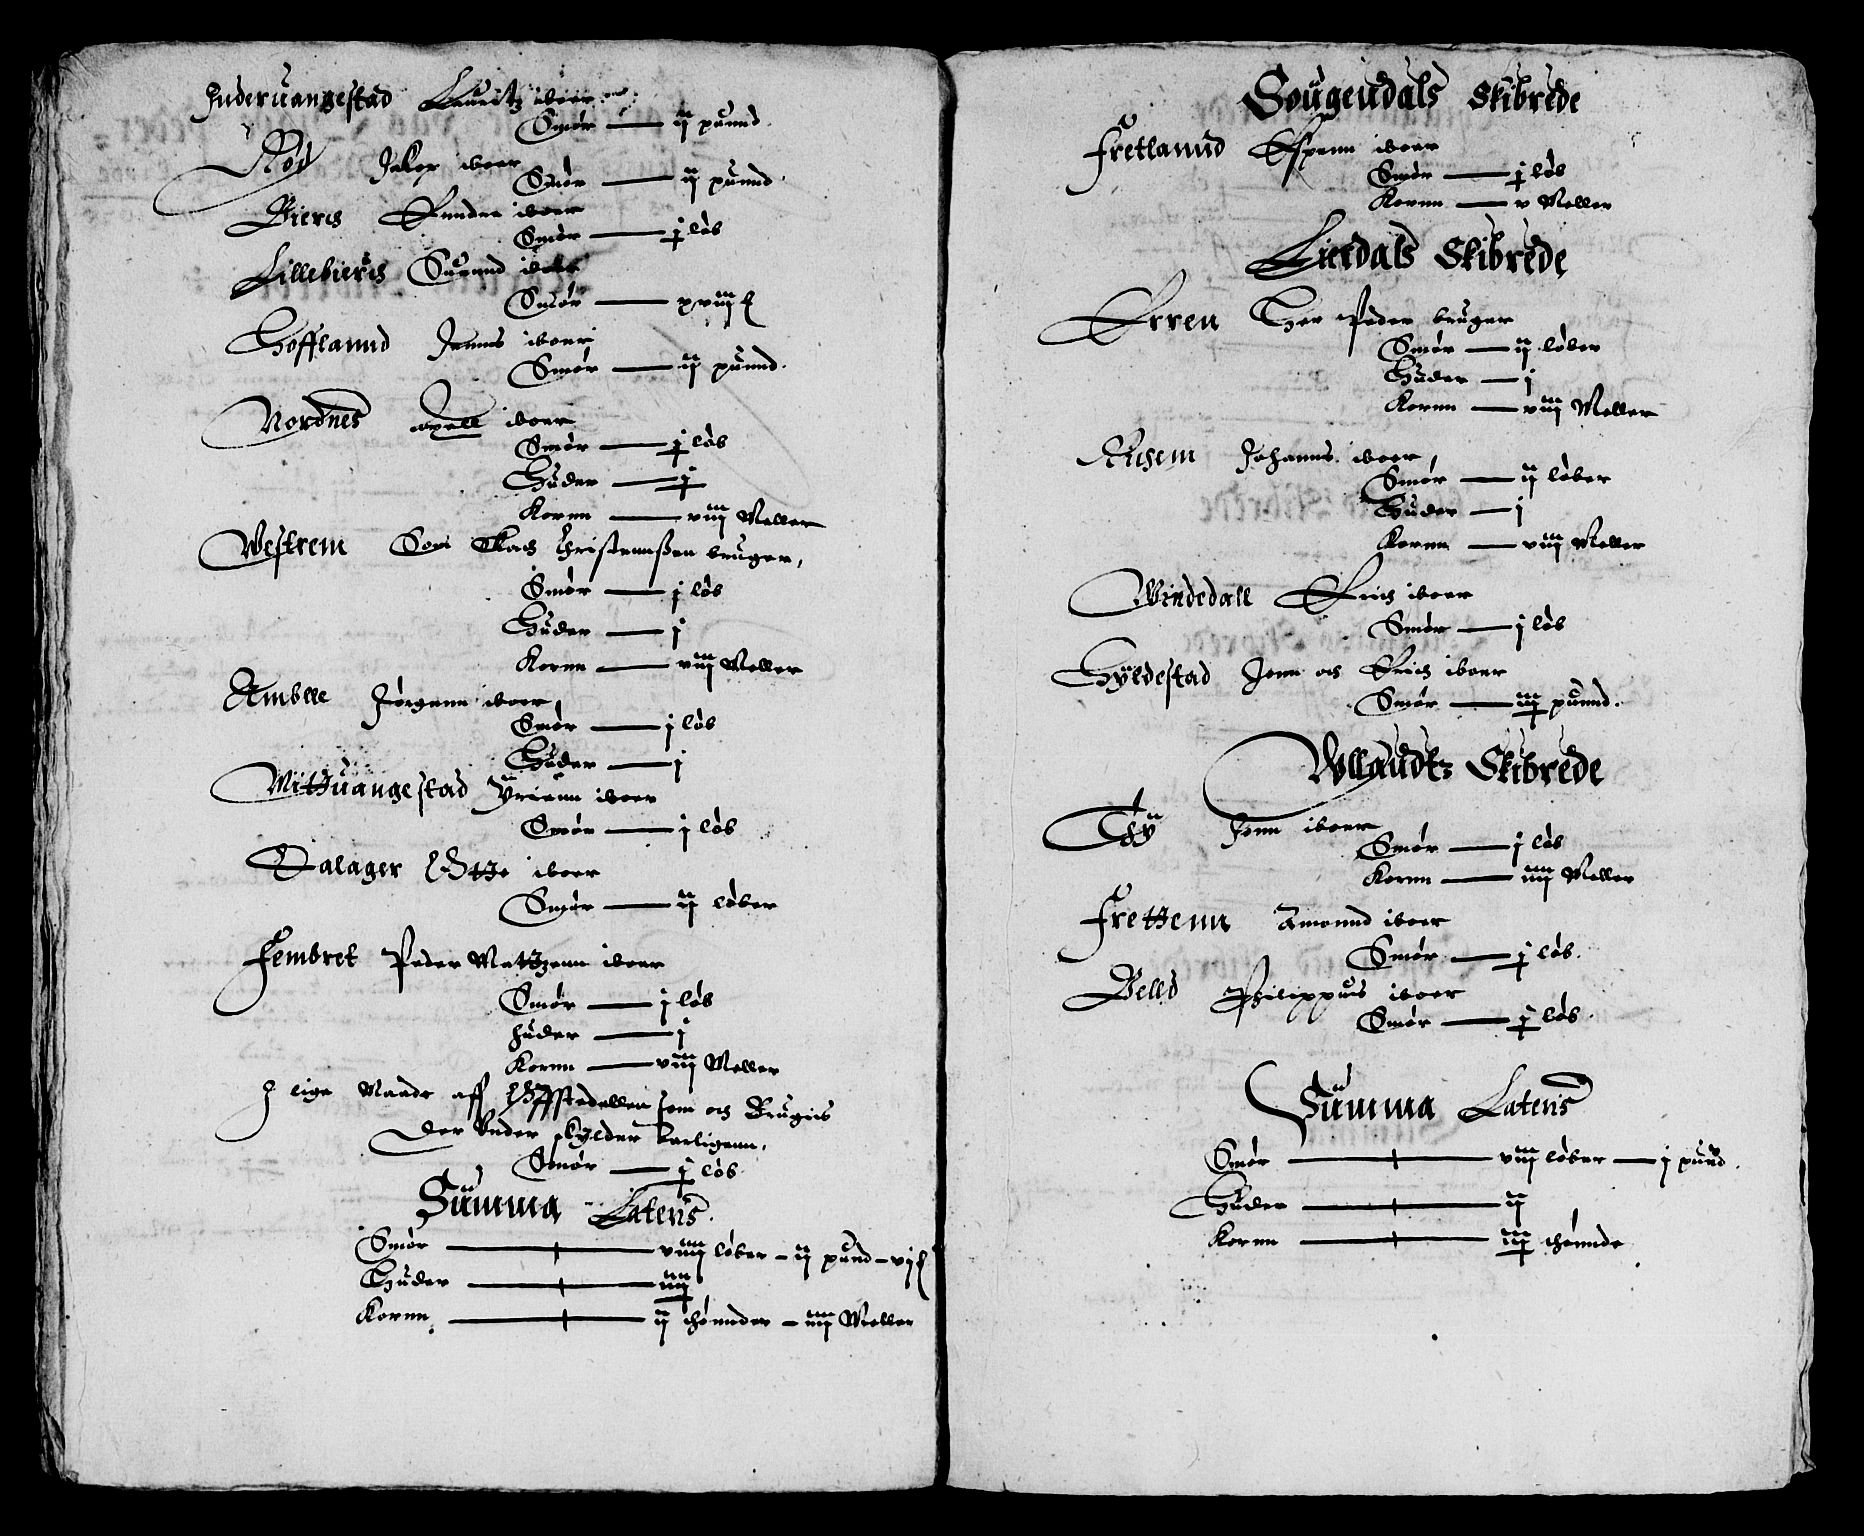 Inderuangestad Lauritz iboer
Smør — ij pund.
Nøs Jakop iboer
Smør — ij pund.
Bierch Amder iboer
Smør — j løb
Lillebierch Suend iboer
Smør — xviij
Hofflannd Jenns iboer
Smør — ij pund.
Nordnes iboer
Smør — j løb
Huder — j
Kornn — viij Meller
Westrem Som Christennßen bruger,
Smør — j løb
Huder — j
Kornn — viij Meller
Amble Jørgenn iboer,
Smør — j løb
Huder — j
Mittuangestad iboer
Smør — j løb
Dalager iboer
Smør — ij løber
Fembret Peder Matzenn iboer
Smør — j løb
Huder — j
Kornn — viij Meller
I lige Maade aff som och Brugis
Der Under skylder Aarligenn,
Smør — j løb
Summa Lateris.
Smør — viiij løber – ij pund – vij
Huder — iiij
Kornn — ij thønnder – iiij Meller
Sougendals Skibrede
Fretlannd Espenn iboer
Smør — j løb
Kornn — v Meller
Lierdals Skibrede
Erren Her Peder bruger
Smør — ij løber
Huder — j
Kornn — viij Meller
Ruhem Johanns iboer,
Smør — ij løber
Huder — j
Kornn — viij Meller
Windedall Erich iboer
Smør — j løb
Hyldestad Jonn och Erich iboer
Smør — iij pund.
Wllandtz Skibrede
Thÿ Jonn iboer
Smør — j løb
Kornn — iiij Meller
Frettenn Amonnd iboer
Smør — j løb.
Belld Philippus iboer
Smør — j løb.
Summa Lateris
Smør — viij løber — j pund.
Huder — ij
Kornn — iij thønnde